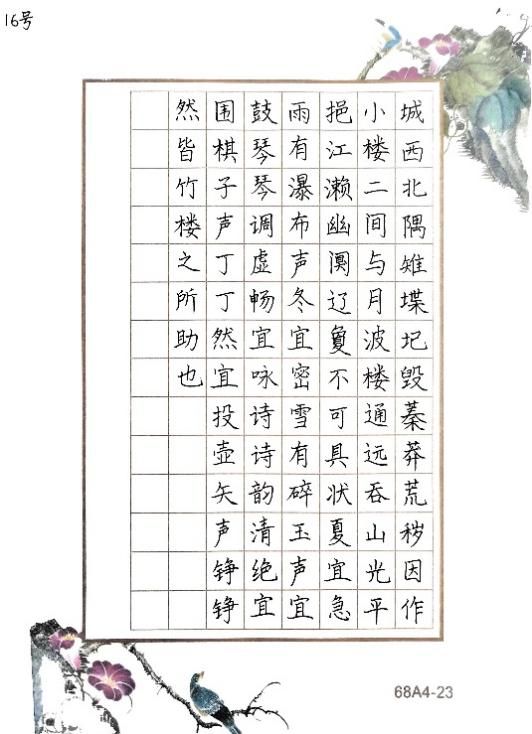 16号
城西北隅雉堞圮毁蓁莽荒秽因作
小楼二间与月波楼通远吞山光平
挹江濑幽阒辽夐不可具状夏宜急
雨有瀑布声冬宜密雪有碎玉声宜
鼓琴琴调虚畅宜咏诗诗韵清绝宜
围棋子声丁丁然宜投壶矢声铮铮
然皆竹楼之所助也
68A4-23